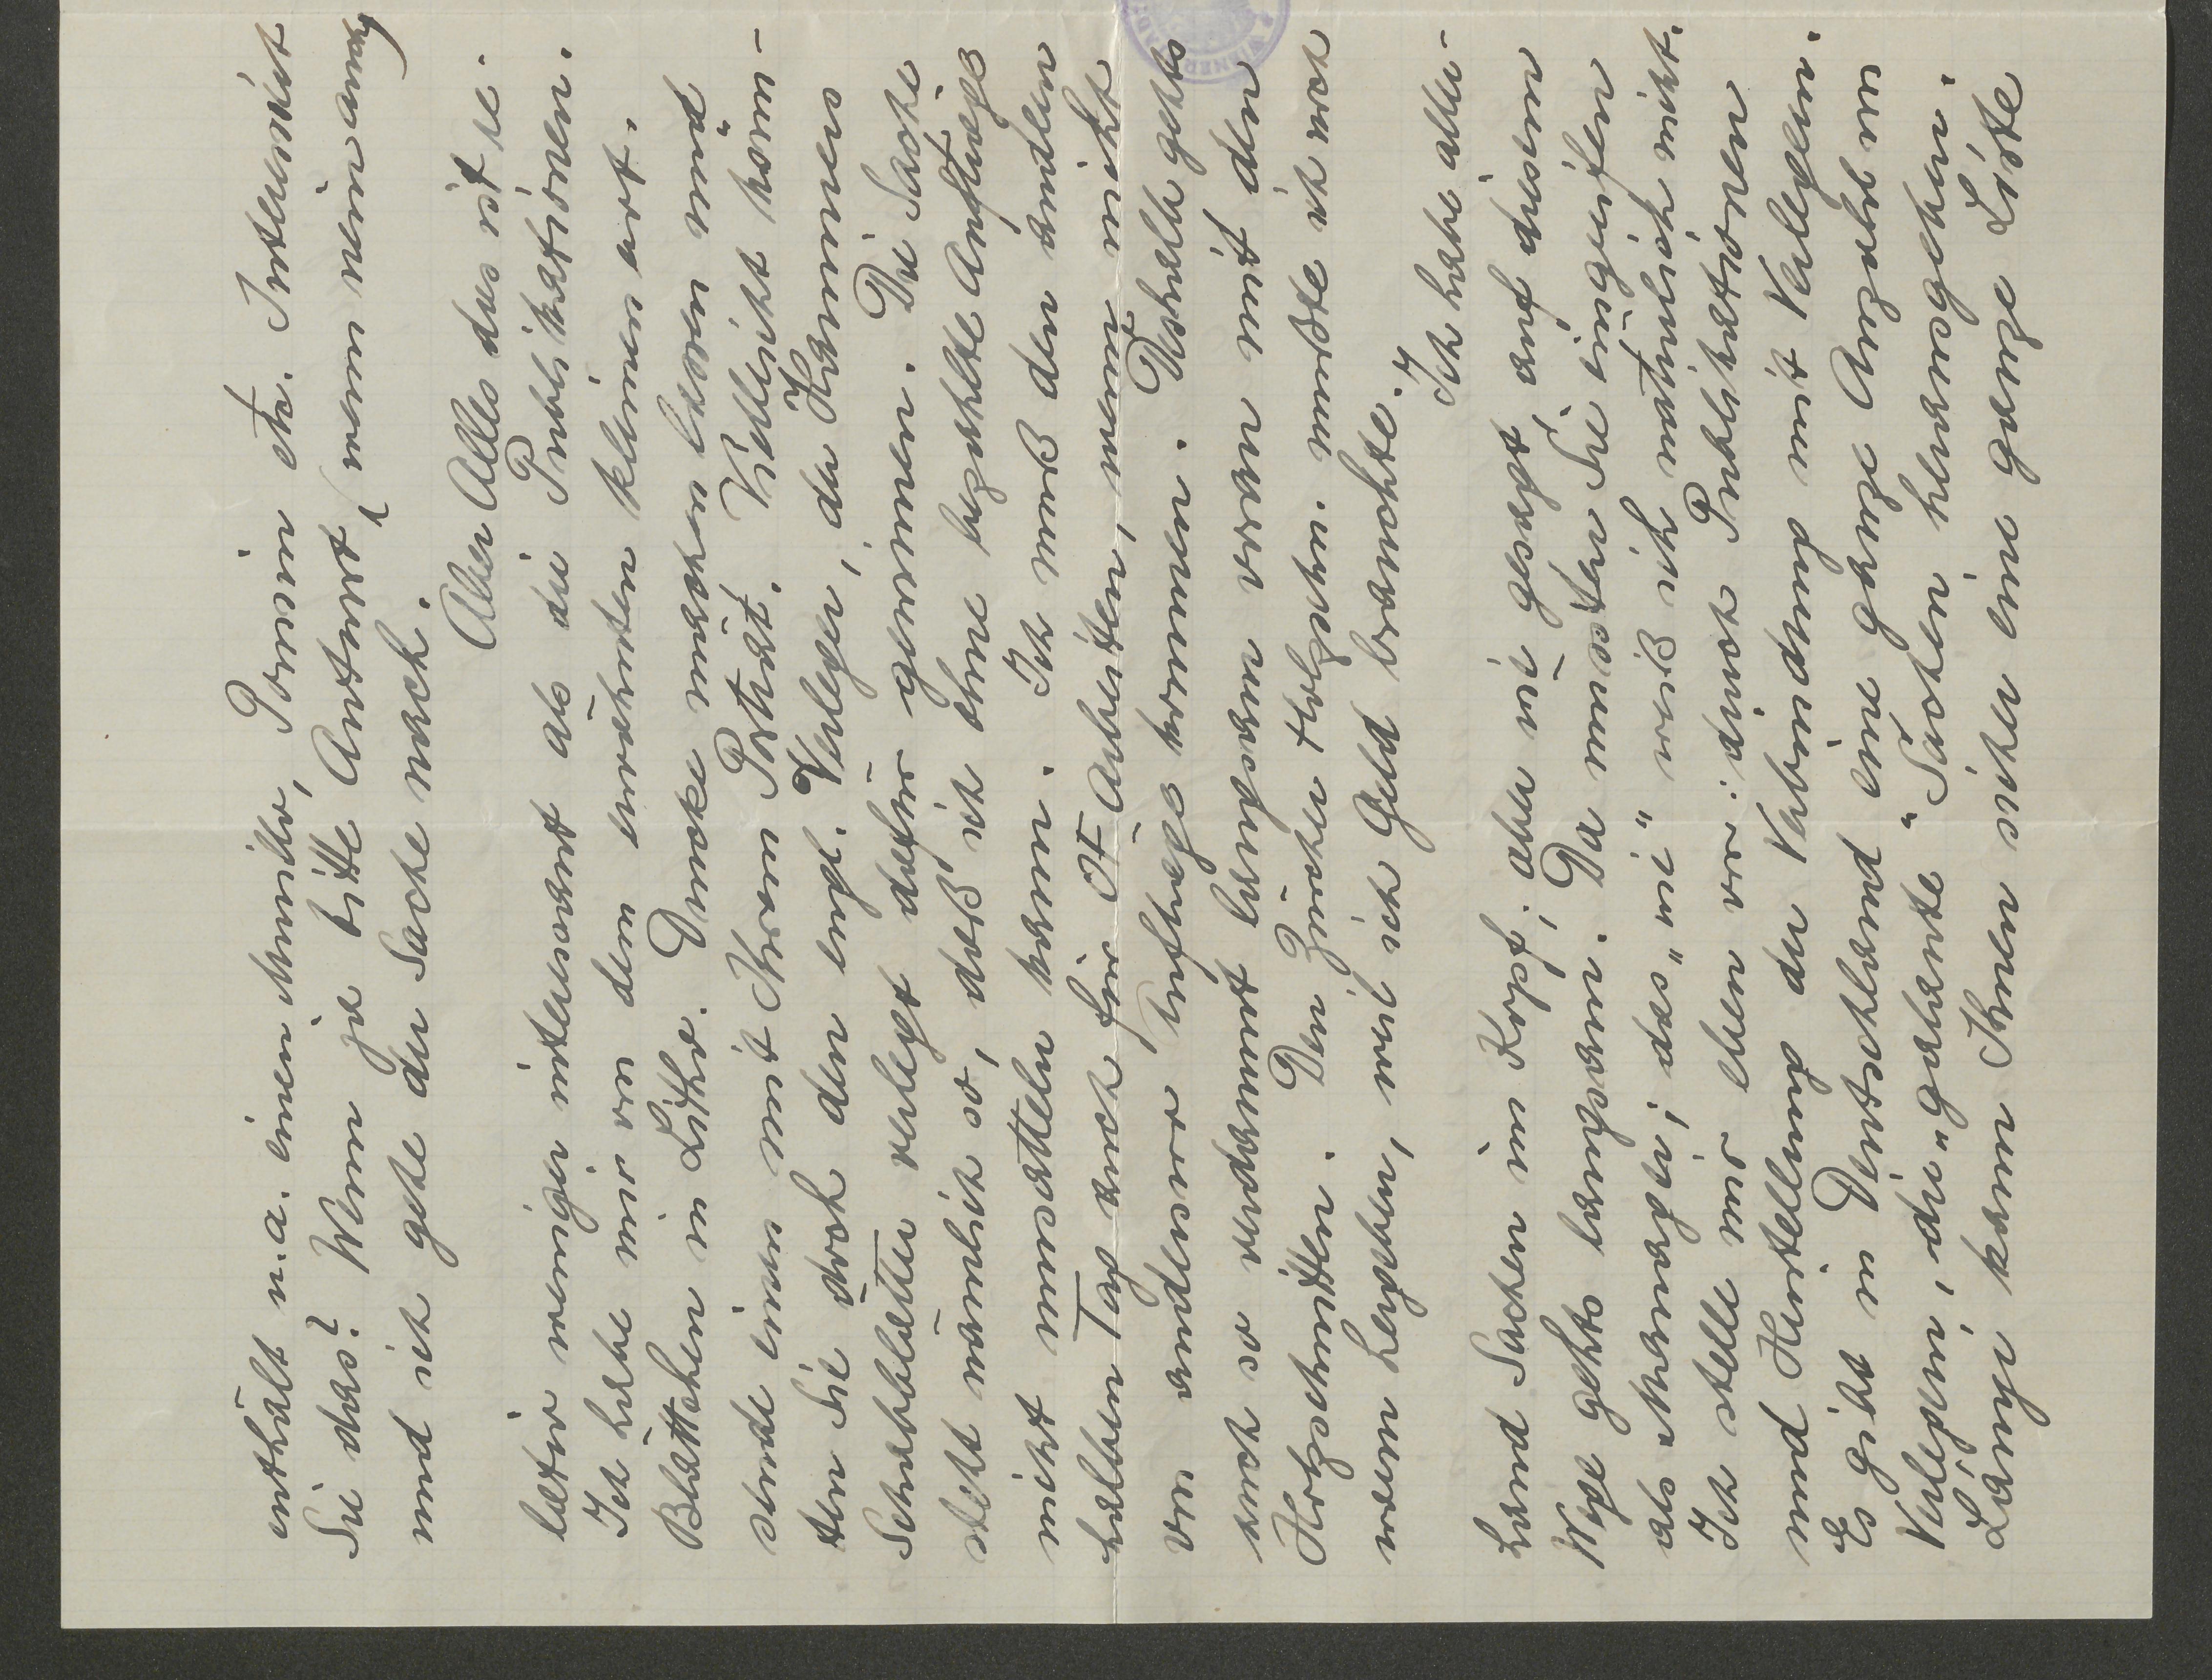 enthält u. a. einen Murillo, Poussin etc. Interessiert
Sie das? Wenn ja bitte Antwort, wenn nein auch
und ich gehe der Sache nach.
Aber Alles das ist re-
lativ weniger interessant als die Publikationen.
Ich habe mir von dem erwähnten kleinen ert.
Blättchen in Litho. Drucke machen lassen und
sende einen mit Ihrem Porträt. Vielleicht könn-
ten Sie doch den engl. Verleger, der Hammers
Schabblätter verlegt dafür gewinnen. Die Sache
steht nämlich so, daß ich ohne bezahlte Aufträge
nicht umsatteln kann. Ich muß den andern
halben Tag auch für OF arbeiten, wenn nicht
von anderswo Aufträge kommen. Deshalb gehts
auch so verdammt langsam voran mit den
Holzschnitten. Den Zürcher Holzschn. mußte ich noch
wem hergeben, weil ich Geld brauchte.
Ich habe aller-
hand Sachen im Kopf; aber wie gesagt, auf diesem
Wege gehts langsam. Da müssten Sie eingreifen
als Manager; das „wie“ weiß ich natürlich nicht.
Ich stelle mir eben vor: durch Publikationen
und Herstellung der Verbindung mit Verlegern.
Es gibt in Deutschland eine ganze Anzahl von
Verlegern, die „galante“ Sachen herausgeben.
Lányi kann Ihnen sicher eine ganze Liste